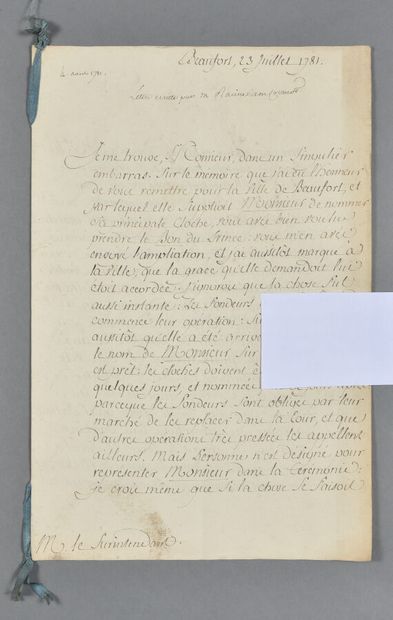 Beaufort, 23 Juillet 1781.
Lettre écrite par M
Je me trouve, Monsieur, dans un Singulier
embarras. Sur le mémoire que j'ai eu l'honneur
de vous remettre pour la Ville de Beaufort, et
par lequel elle Suplioit Monsieur de nommer
sa principale Cloche, vous avez bien voulu
prendre le Bon du Prince: vous m'en avez
envoyé l'ampliation, et j'ai aussitôt marqué à
la Ville, que la grace qu'elle demandoit lui
étoit accordée. J'ignorois que la chose fut
aussi instante: Les Fondeurs
commencé leur opération:
aussitôt qu'elle a été
le nom de Monsieur Sur
est prêt: les cloches doivent
quelques jours, et nommées
parceque les Fondeurs sont obligés par leur
marché de les replacer dans la Tour, et que
d'autres opérations très pressées les appellent
ailleurs. Mais Personne n'est désigné pour
représenter Monsieur dans la Cérémonie:
je crois même que si la chose se faisoit
M. le Surintendant.